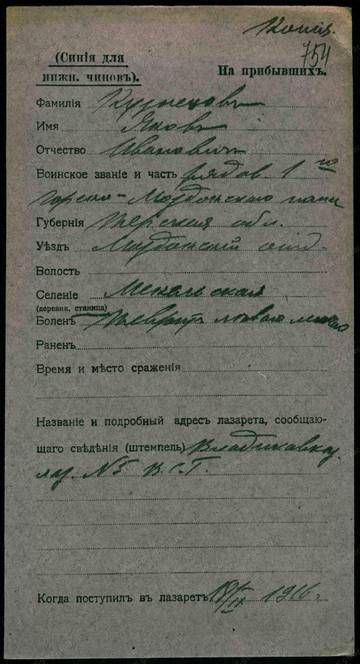 Копия.
754
(Синія для
нижн. чиновъ).
На прибывшихъ.
Фамилія Кузнецовъ
Имя Яковъ
Отчество Ивановичъ
Воинское званіе и часть рядов. 1го
Горско-Моздокскаго полка
Губернія Терская обл.
Уѣздъ Моздокскій отд.
Волость
Селеніе
(деревня, станица)
Боленъ Плевритъ
Раненъ
Время и мѣсто сраженія
Названіе и подробный адресъ лазарета, сообщаю-
щаго свѣдѣнія (штемпель) Владикавказ.
лаз. №5 В.С.Г.
Когда поступилъ въ лазаретъ 1916 г.